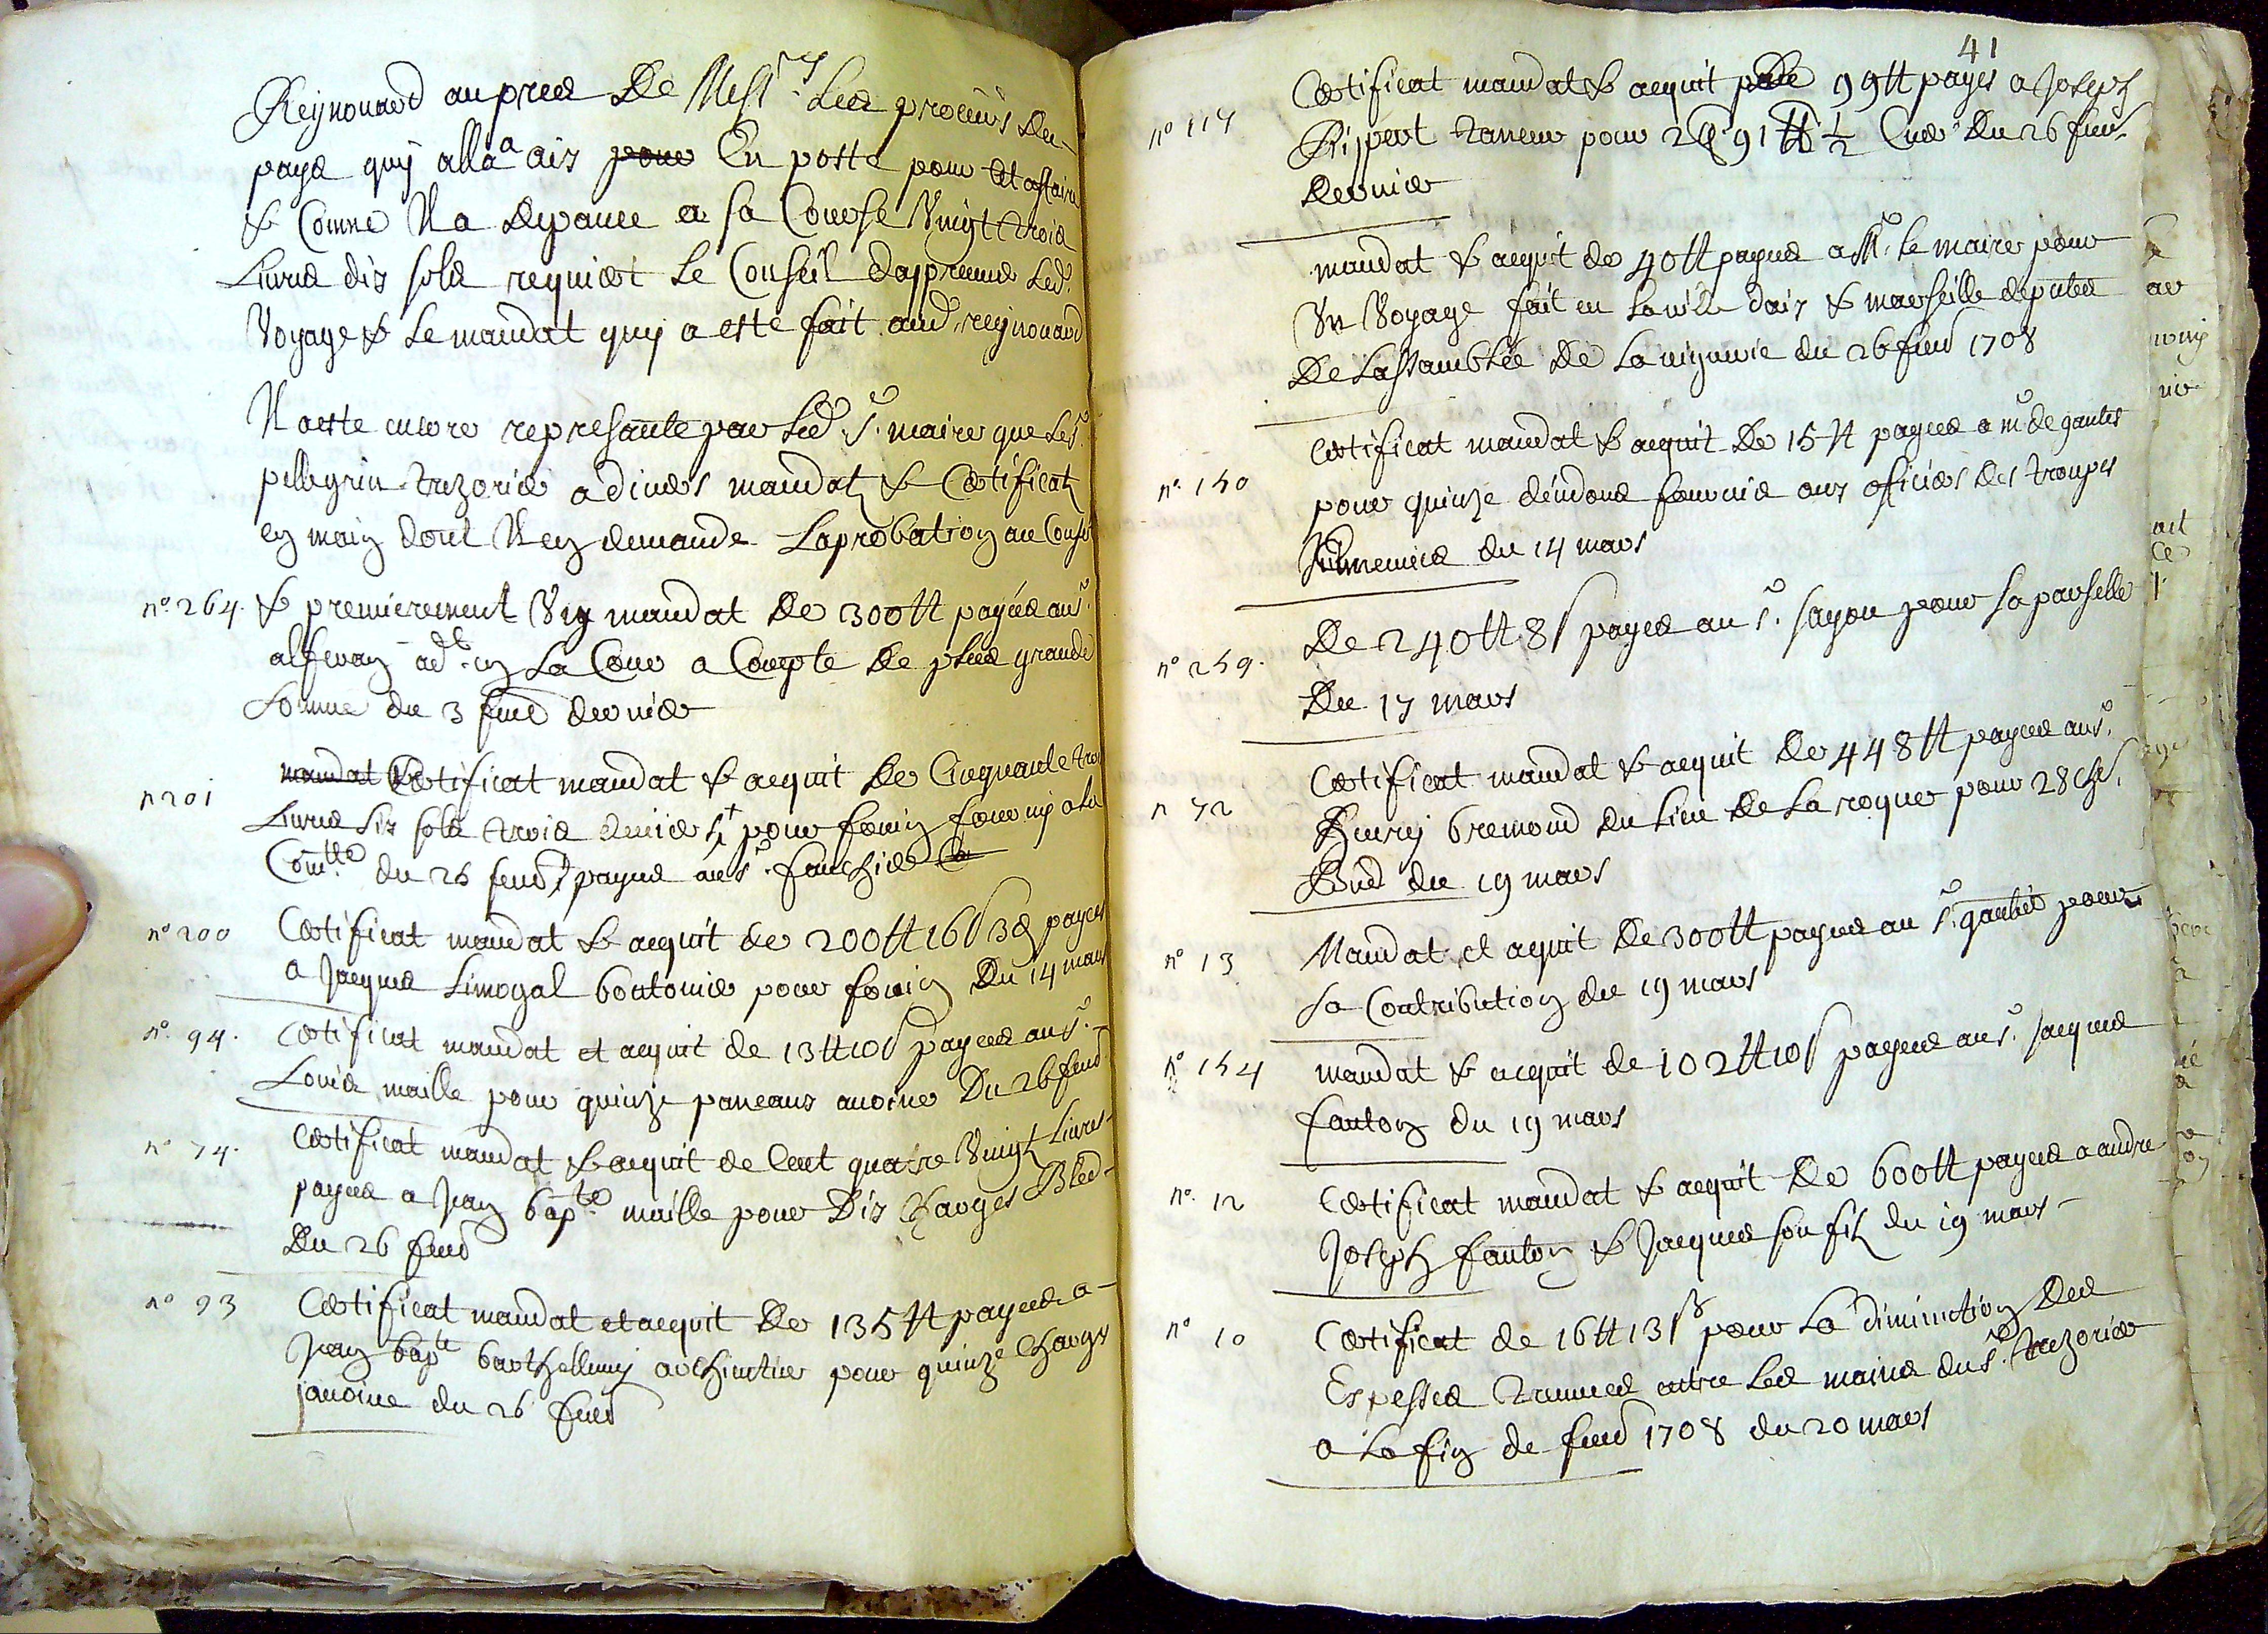 Reynouard aupres de Mess.rs les procurs du
pays quy alla a aix pour En poste pour cet affaire
& Comme Il a depancé a sa Course Vingt trois
Livres dix sols requiert le Conseil dapreuver led.
Voyage & le mandat quy a esté fait aud. reynouard
Il a esté encore representé par led. Sr. maire que le Sr.
pellegrin trezorier a divers mandatz & Certificatz
en main dont Il en demande Laprobation au Conseil
n° 264. & premierement Un mandat de 300 tt payées au Sr.
adt. en La Cour a Compte de plus grande
Somme du 3 feur dernier
n 201 mandat Certificat mandat & acquit de Cinquante trois
Livres six sols trois deniers pour fouin fourny a la
Comtte du 26 feur payées au Sr. fauchier
n° 200 Certificat mandat & acquit de 200 tt 16 s 3 d payées
a Jacques Limogal boutonier pour fouin Du 14 mars
n° 94. Certificat mandat et acquit de 13 tt 10 s payées au Sr.
Louis maille pour quinze paneaux avoine Du 26 feur
n° 74. Certificat mandat & acquit de Cent quatre Vingt Livres
payées a Jean bapte maille pour Dix Charges Bled
Du 26 feur
n° 93 Certificat mandat et acquit de 135 tt payées a
Jean bapte barthellemy pour quinze Charges
avoine du 26 feur
41
n° 117 Certificat mandat & acquit de 99 tt payés a Joseph
Rippert taneur pour 2 91 tt 1/2 Cuer Du 26 feur
dernier
mandat & acquit de 40 tt payées a Mr. le maire pour
Un Voyage fait en la ville daix & marseille deputté
De Lassamblée De la viguerie du 26 feur 1708
n° 150 Certificat mandat & acquit De 15 tt payées a mr. de gantes
pour quinze fournis aux officiers des troupes
du 14 mars
n° 259. De 240 tt 8 s payées au Sr. sayou pour sa parselle
Du 17 mars
n 72 Certificat mandat & acquit De 448 tt payées au Sr.
Henry bremond du lieu de La roque pour 28 chs.
Bled du 19 mars
n° 13 Mandat et aquit De 300 tt payées au Sr. gautier pour
sa Contribution du 19 mars
n° 154 mandat & acquit de 102 tt 10 s payées au Sr. Jacques
fanton du 19 mars
n° 12 Certificat mandat & acquit De 600 tt payées a andre
Joseph fanton & Jacques son filz du 19 mars
n° 10 Certificat de 16 tt 13 s pour la diminution des
Especes entre les mains du Sr. trezorier
a la fin de feur 1708 du 20 mars